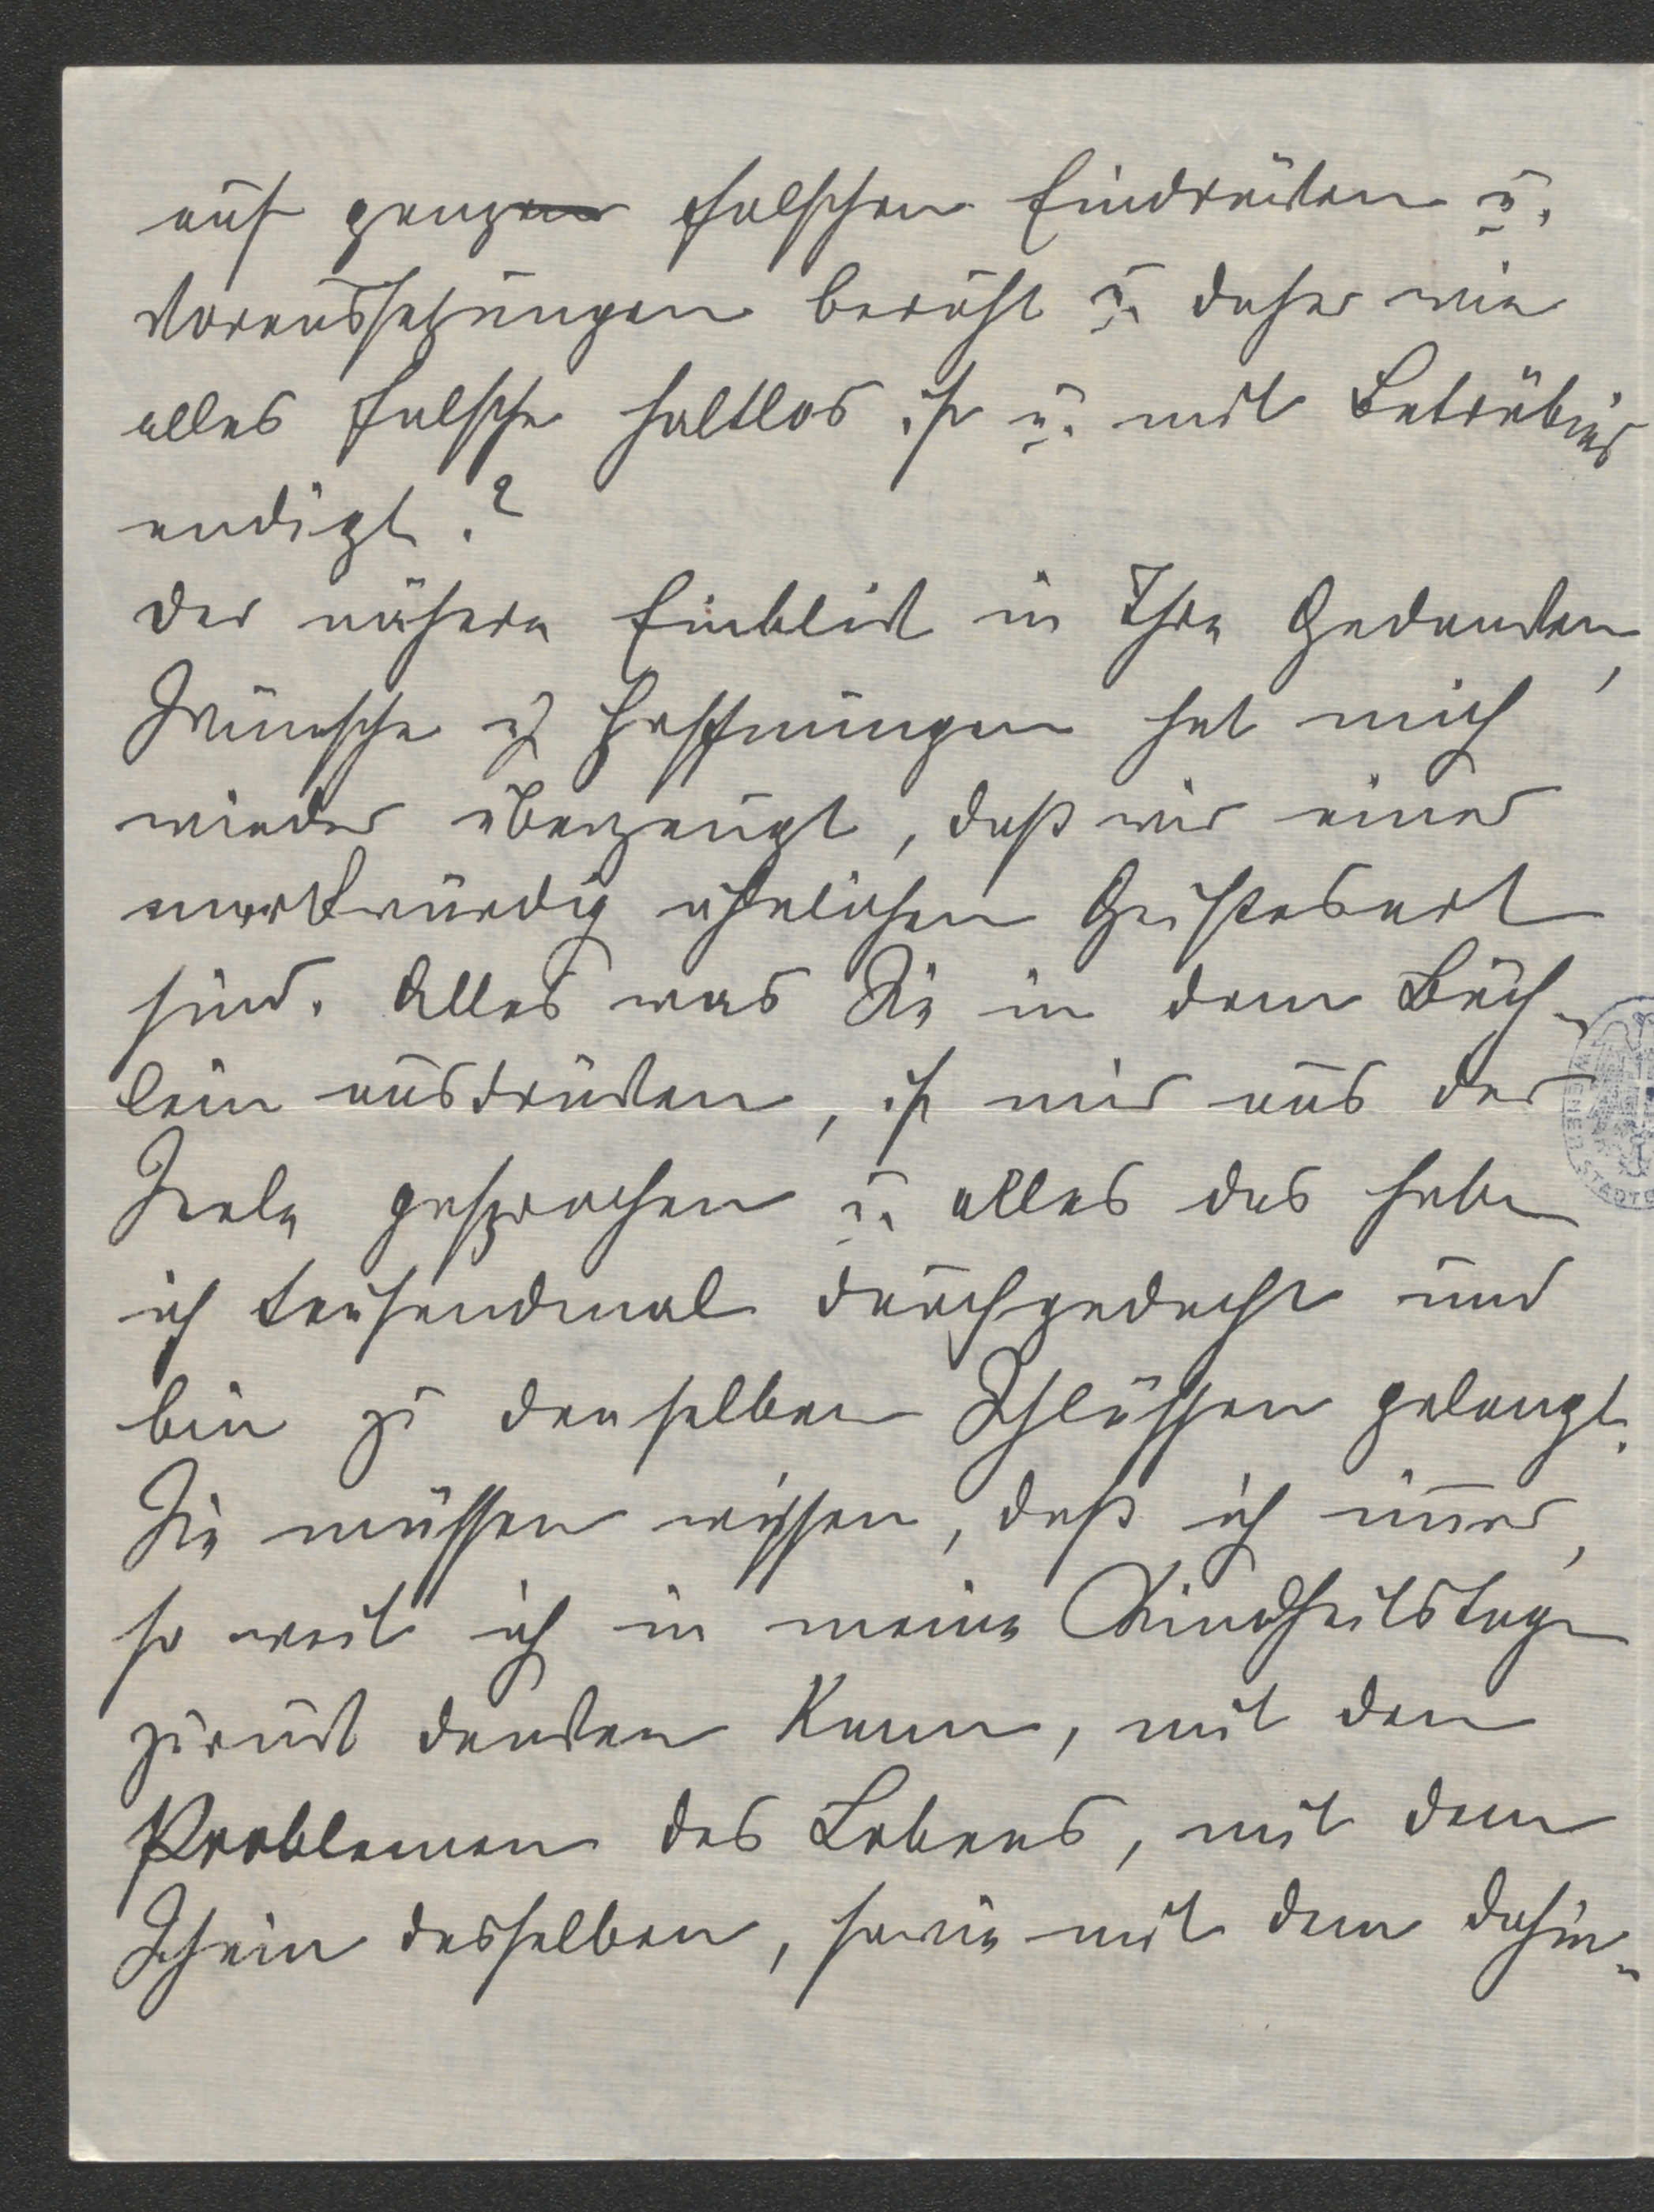 auf ganzen falschen Eindrücken u.
Voraussetzungen beruht u. daher wie
alles falsche haltlos ist u. mit Betrübnis
endigt.?
Der nähere Einblick in Ihre Gedanken,
Wünsche u Hoffnungen hat mich
wieder überzeugt, daß wir einer
merkwürdig ähnlichen Geistesart
sind. Alles was Sie in dem Büch-
lein ausdrücken, ist mir aus der
Seele gesprochen u. alles das habe
ich tausendmal durchgedacht und
bin zu denselben Schlüssen gelangt.
Sie müssen wissen, daß ich im̅er,
so weit ich in meine Kindheitstage
zurück denken kann, mit den
Problemen des Lebens, mit dem
Schein desselben, sowie mit dem dahin-
WIENER STADTB